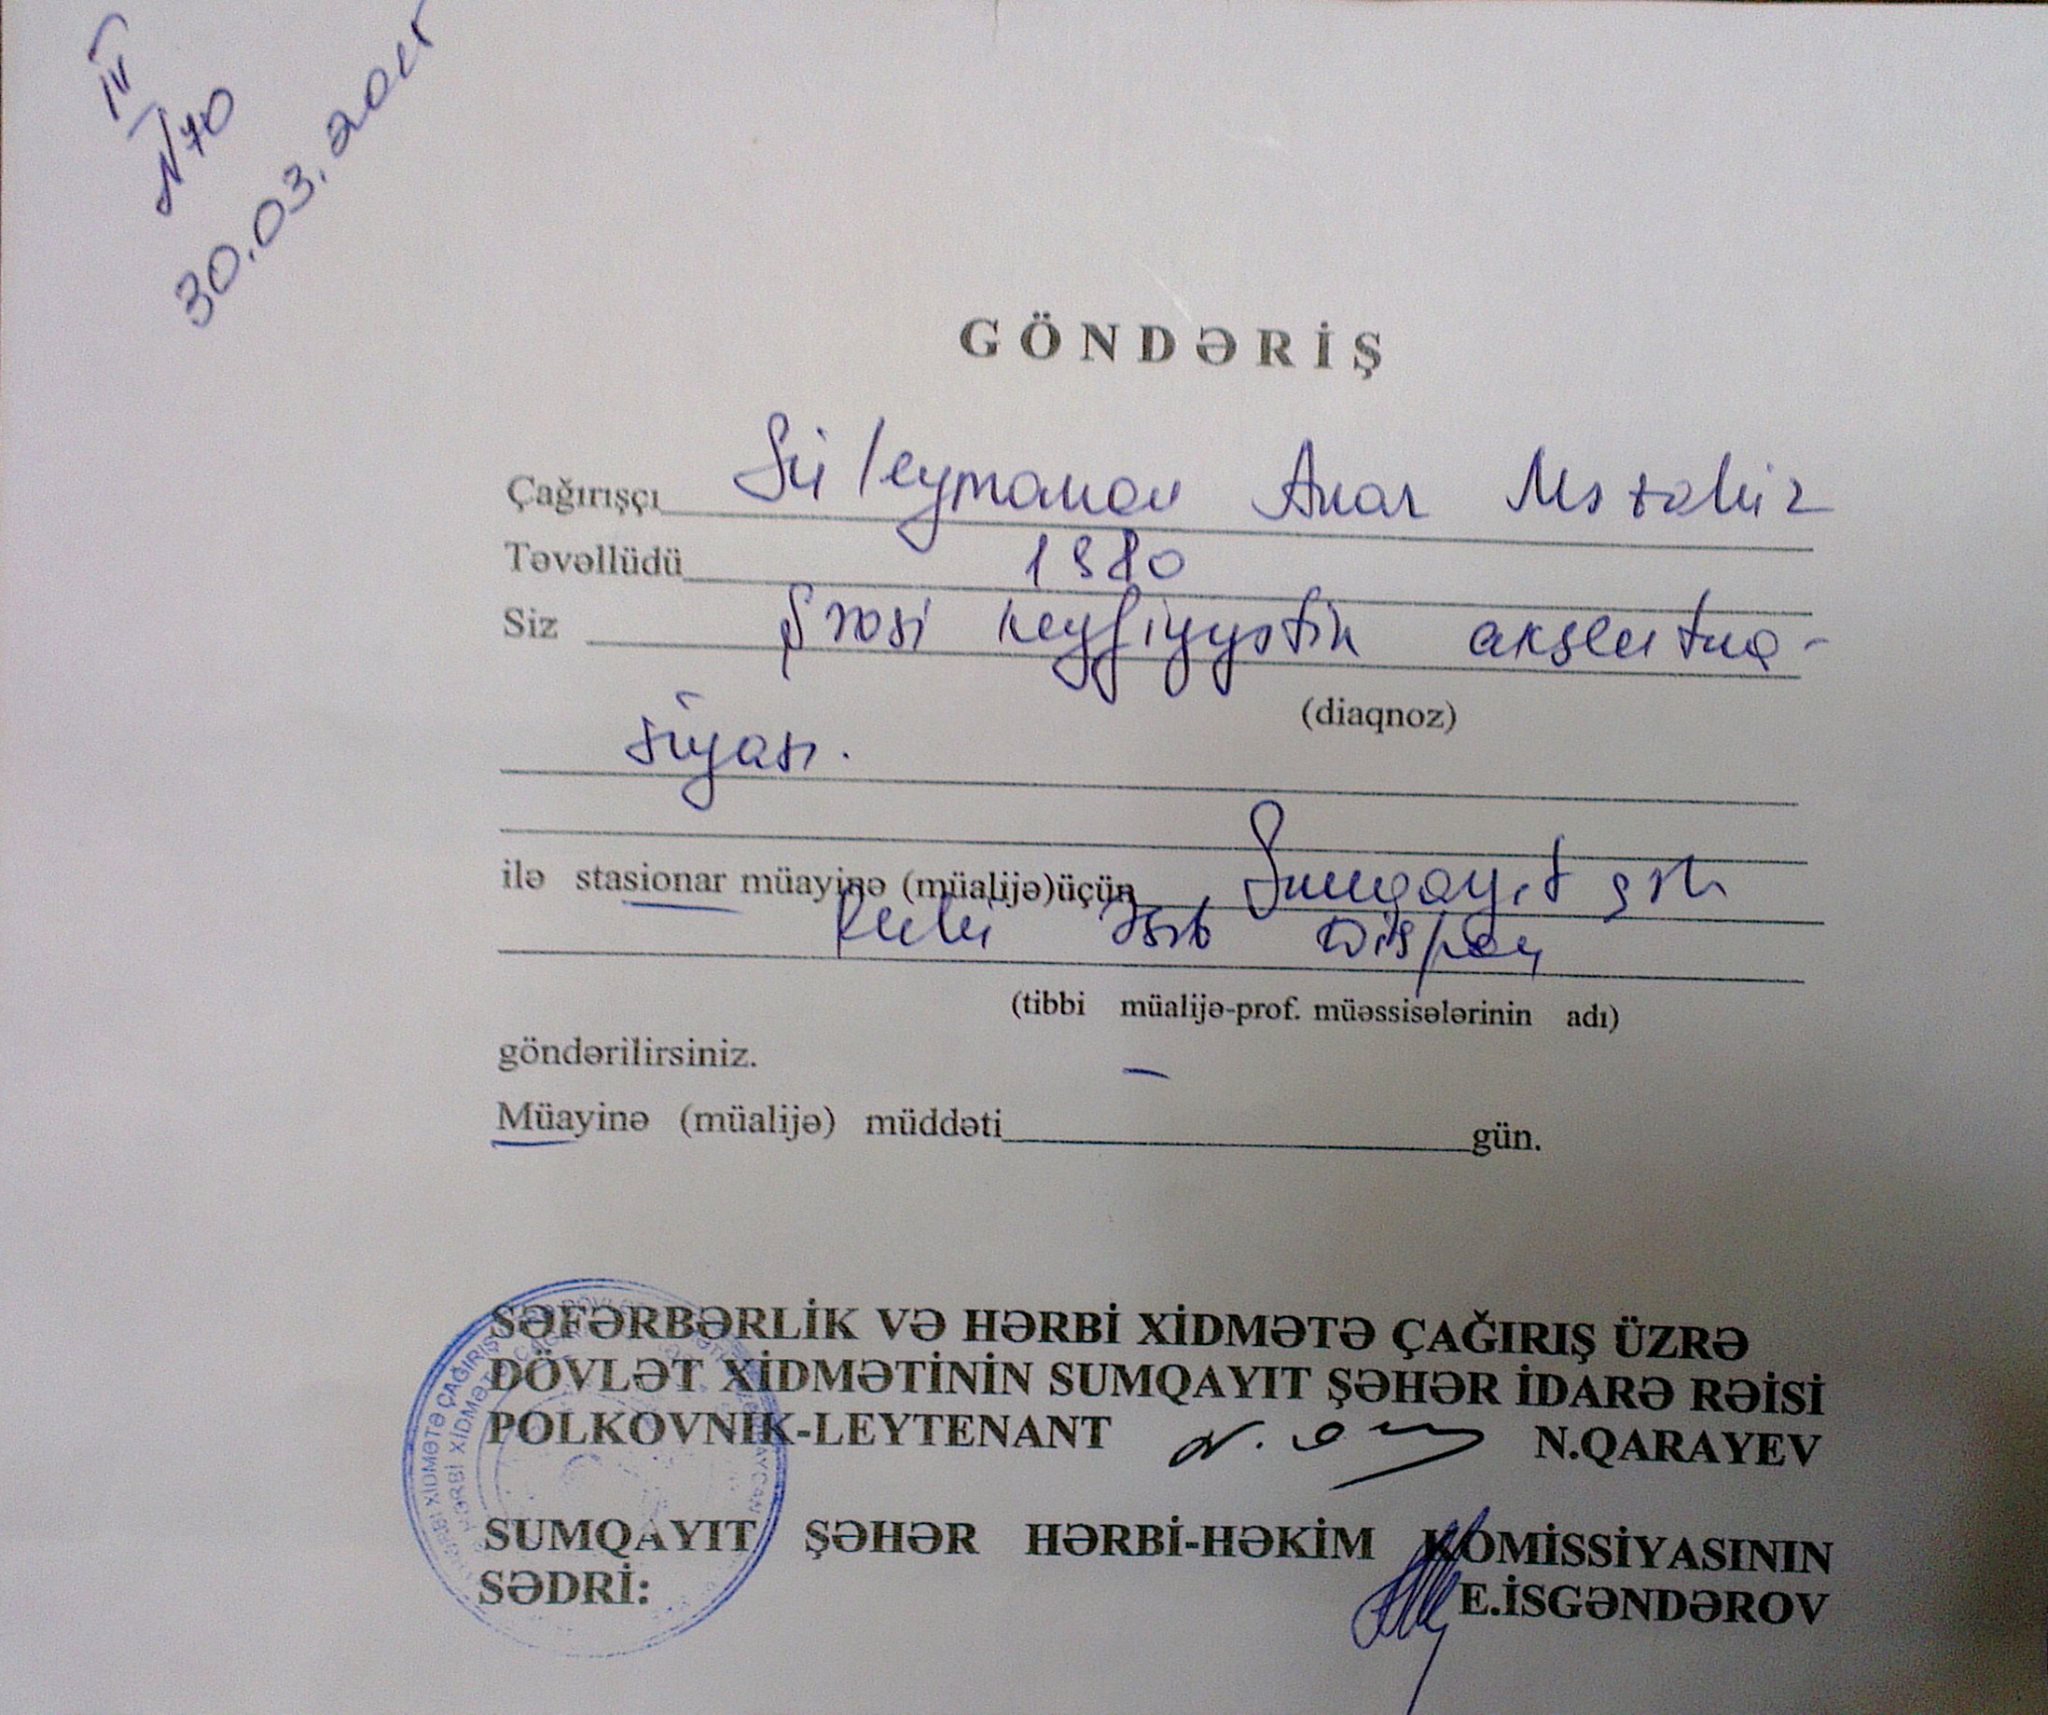 III
N70
30.03.2015
GÖNDƏRİŞ
Çağırışçı Süleymanov Anar Məzahir
Təvəllüdü 1980
Siz Şəxsi keyfiyyətin aksentua-
(diaqnoz)
siyası.
ilə stasionar müayinə (müalijə)üçün Sumqayıt şəh
Ruhi Əsəb Dispan
(tibbi müalijə-prof. müəssisələrinin adı)
göndərilirsiniz. –
Müayinə (müalijə) müddəti gün.
SƏFƏRBƏRLİK VƏ HƏRBİ XİDMƏTƏ ÇAĞIRIŞ ÜZRƏ
DÖVLƏT XİDMƏTİNİN SUMQAYIT ŞƏHƏR İDARƏ RƏİSİ
POLKOVNİK-LEYTENANT N.QARAYEV
SUMQAYIT ŞƏHƏR HƏRBİ-HƏKİM KOMİSSİYASININ
SƏDRİ: E.İSGƏNDƏROV